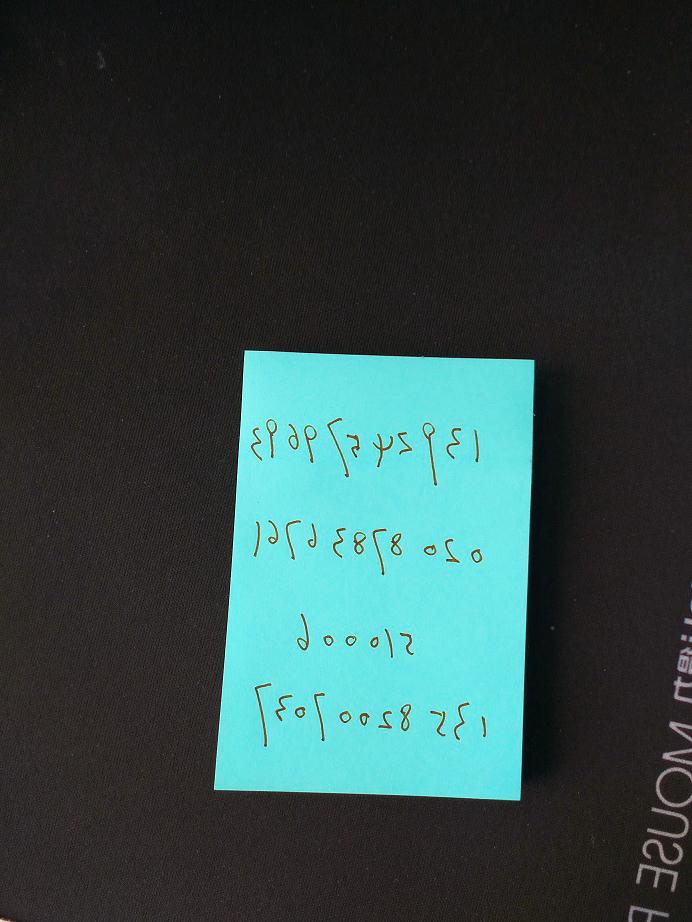 139 24579693
020 87836761
510006
135 8200 7037
MOUSE